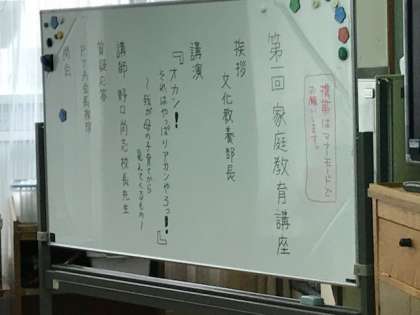 携帯はマナーモードで
お願いします。
第一回 家庭教育講座
挨拶 文化教養部長
講演
『オカン!
それはやっぱりアカンやろっ!!』
~我が母の子育てから
見えてくるもの~
講師 野口尚志校長先生
質疑応答
PTA会長挨拶
閉会